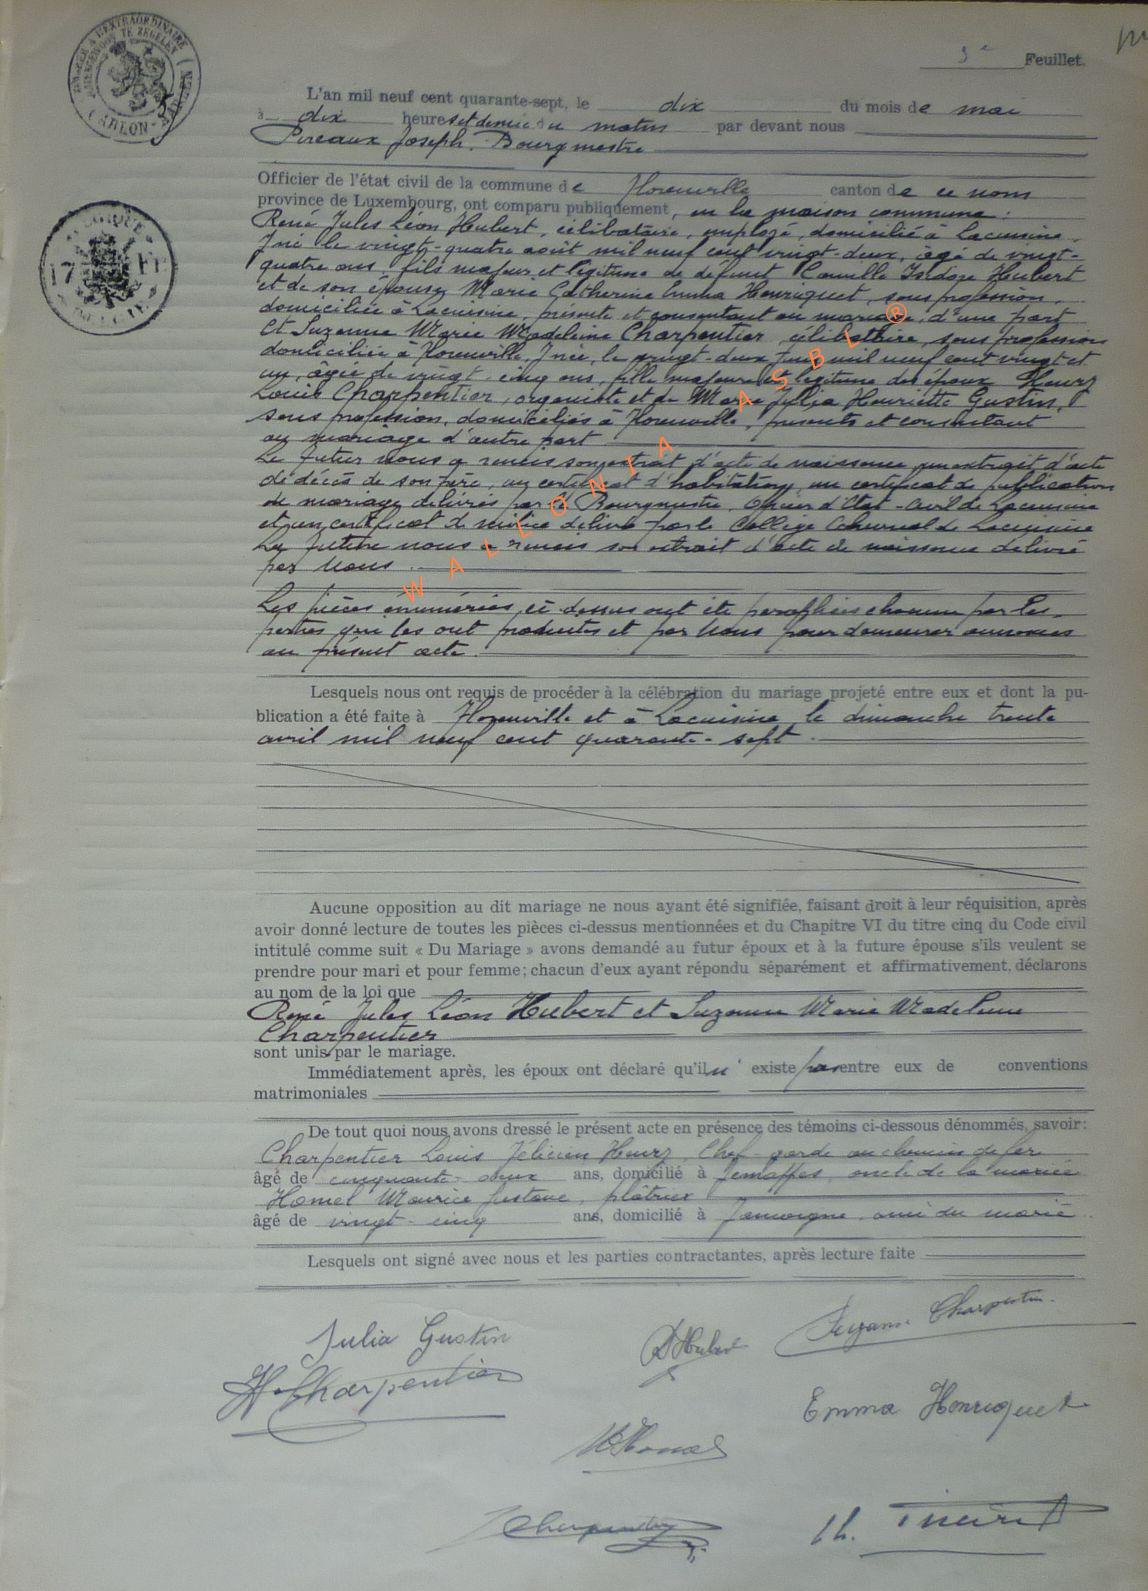 3e Feuillet.
L'an mil neuf cent quarante-sept, le dix du mois de mai
à dix heures et demie du matin par devant nous
Pireaux Joseph. Bourgmestre
Officier de l'état civil de la commune de canton de ce nom
province de Luxembourg, ont comparu publiquement, en la maison commune :
René Jules Léon Hubert, célibataire, employé, domicilié à Lacuisine,
né le vingt-quatre août mil neuf cent vingt-deux, âgé de vingt-
quatre ans, fils majeur et légitime de défunt Camille Isidore Hubert
et de son épouse Marie Catherine Emma Henriquet, sans profession,
domiciliée à Lacuisine, présente et consentant au mariage, d'une part
Et Suzanne Marie Madeleine Charpentier, célibataire, sans profession
domiciliée à née le vingt-deux mil neuf cent vingt et
un, âgée de vingt-cinq ans, fille majeure et légitime des époux Henry
Louis Charpentier, organiste et de Marie Julia Henriette Gustin,
sans profession, domiciliés à présents et consentant
au mariage d'autre part
Le futur nous a remis son extrait d'acte de naissance, un extrait d'acte
de décès de son père, un certificat d'habitation, un certificat de publication
de mariage délivrés par le Bourgmestre, Officier d'Etat-Civil de Lacuisine
et un certificat de milice délivré par le Collège échevinal de Lacuisine
La future nous a remis son extrait d'acte de naissance délivré
par Nous.
Les pièces énumérées ci-dessus ont été paraphées chacune par les
parties qui les ont produites et par Nous pour demeurer annexées
au présent acte.
Lesquels nous ont requis de procéder à la célébration du mariage projeté entre eux et dont la pu-
blication a été faite à et à Lacuisine le dimanche trente
avril mil neuf cent quarante-sept.
Aucune opposition au dit mariage ne nous ayant été signifiée, faisant droit à leur réquisition, après
avoir donné lecture de toutes les pièces ci-dessus mentionnées et du Chapitre VI du titre cinq du Code civil
intitulé comme suit « Du Mariage » avons demandé au futur époux et à la future épouse s'ils veulent se
prendre pour mari et pour femme; chacun d'eux ayant répondu séparément et affirmativement, déclarons
au nom de la loi que
René Jules Léon Hubert et Suzanne Marie Madeleine
Charpentier
sont unis par le mariage.
Immédiatement après, les époux ont déclaré qu'il n' existe pas entre eux de conventions
matrimoniales
De tout quoi nous avons dressé le présent acte en présence des témoins ci-dessous dénommés, savoir:
Charpentier Louis Félicien Henry, Chef-garde au chemin de fer
âgé de cinquante-deux ans, domicilié à Jemappes, oncle de la mariée
Hamel Maurice Gustave, plâtrier
âgé de vingt-cinq ans, domicilié à Jamoigne, ami du marié
Lesquels ont signé avec nous et les parties contractantes, après lecture faite
Julia Gustin
Hubert
Suzanne Charpentier
H. Charpentier
Emma Henriquet
Charpentier
WALLONIA ASBL ®